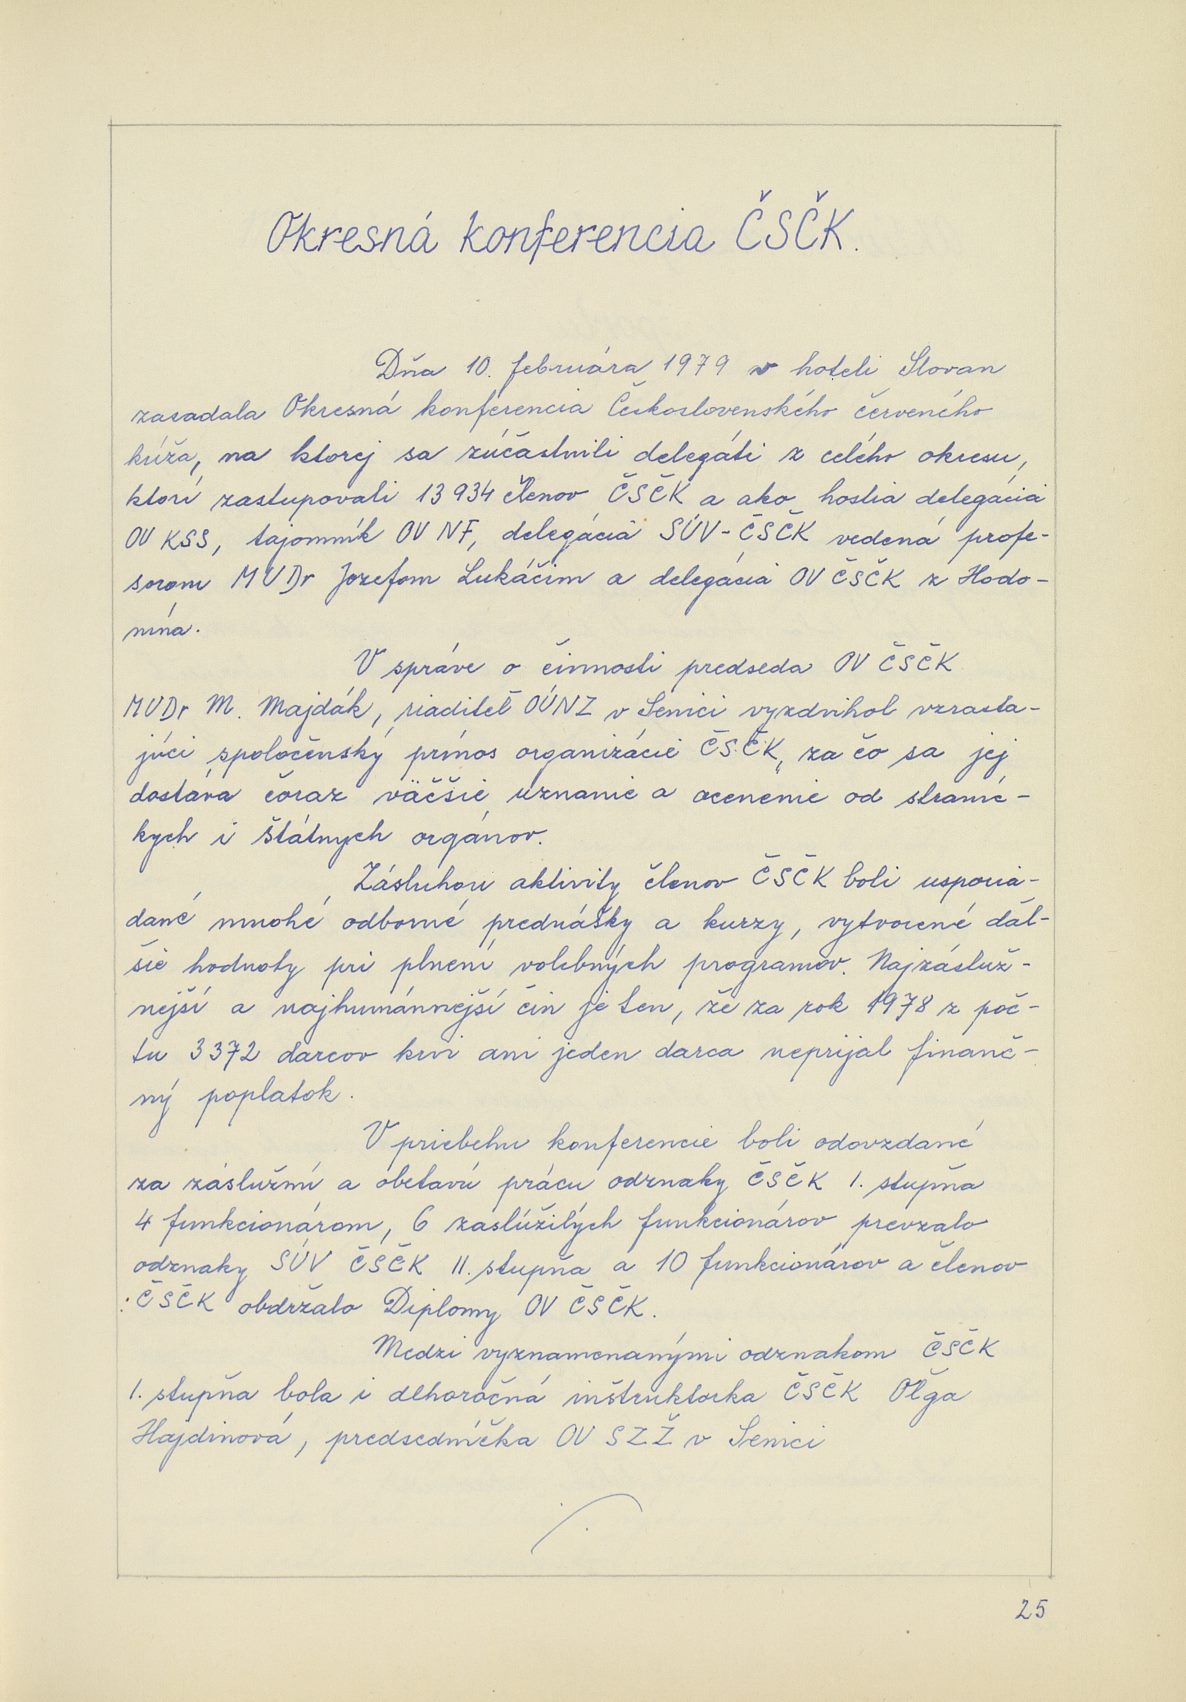 Okresná konferencia ČSČK.
Dňa 10. februára 1979 v hoteli Slovan
zasadala Okresná konferencia Československého červeného
kríža, na ktorej sa zúčastnili delegáti z celého okresu,
ktorí zastupovali 13 934 členov ČSČK a ako hostia delegácia
OV KSS, tajomník OV NF, delegácia SÚV-ČSČK vedená profe-
sorom MUDr Jozefom Lukáčim a delegácia OV ČSČK z Hodo-
nína.
V správe o činnosti predseda OV ČSČK
MUDr M. Majdák, riaditeľ OÚNZ v Senici vyzdvihol vzrasta-
júci spoločenský prínos organizácie ČSČK, za čo sa jej
dostáva čoraz väčšie uznanie a ocenenie od straníc-
kych i štátnych orgánov.
Zásluhou aktivity členov ČSČK boli usporia-
dané mnohé odborné prednášky a kurzy, vytvorené ďal-
šie hodnoty pri plnení volebných programov. Najzásluž-
nejší a najhumánnejší čin je ten, že za rok 1978 z poč-
tu 3372 darcov krvi ani jeden darca neprijal finanč-
ný poplatok.
V priebehu konferencie boli odovzdané
za záslužnú a obetavú prácu odznaky ČSČK I. stupňa
4 funkcionárom, 6 zaslúžilých funkcionárov prevzalo
odznaky SÚV ČSČK II. stupňa a 10 funkcionárov a členov
ČSČK obdržalo Diplomy OV ČSČK.
Medzi vyznamenanými odznakom ČSČK
I. stupňa bola i dlhoročná inštruktorka ČSČK Oľga
Hajdinová, predsedníčka OV SZŽ v Senici
25